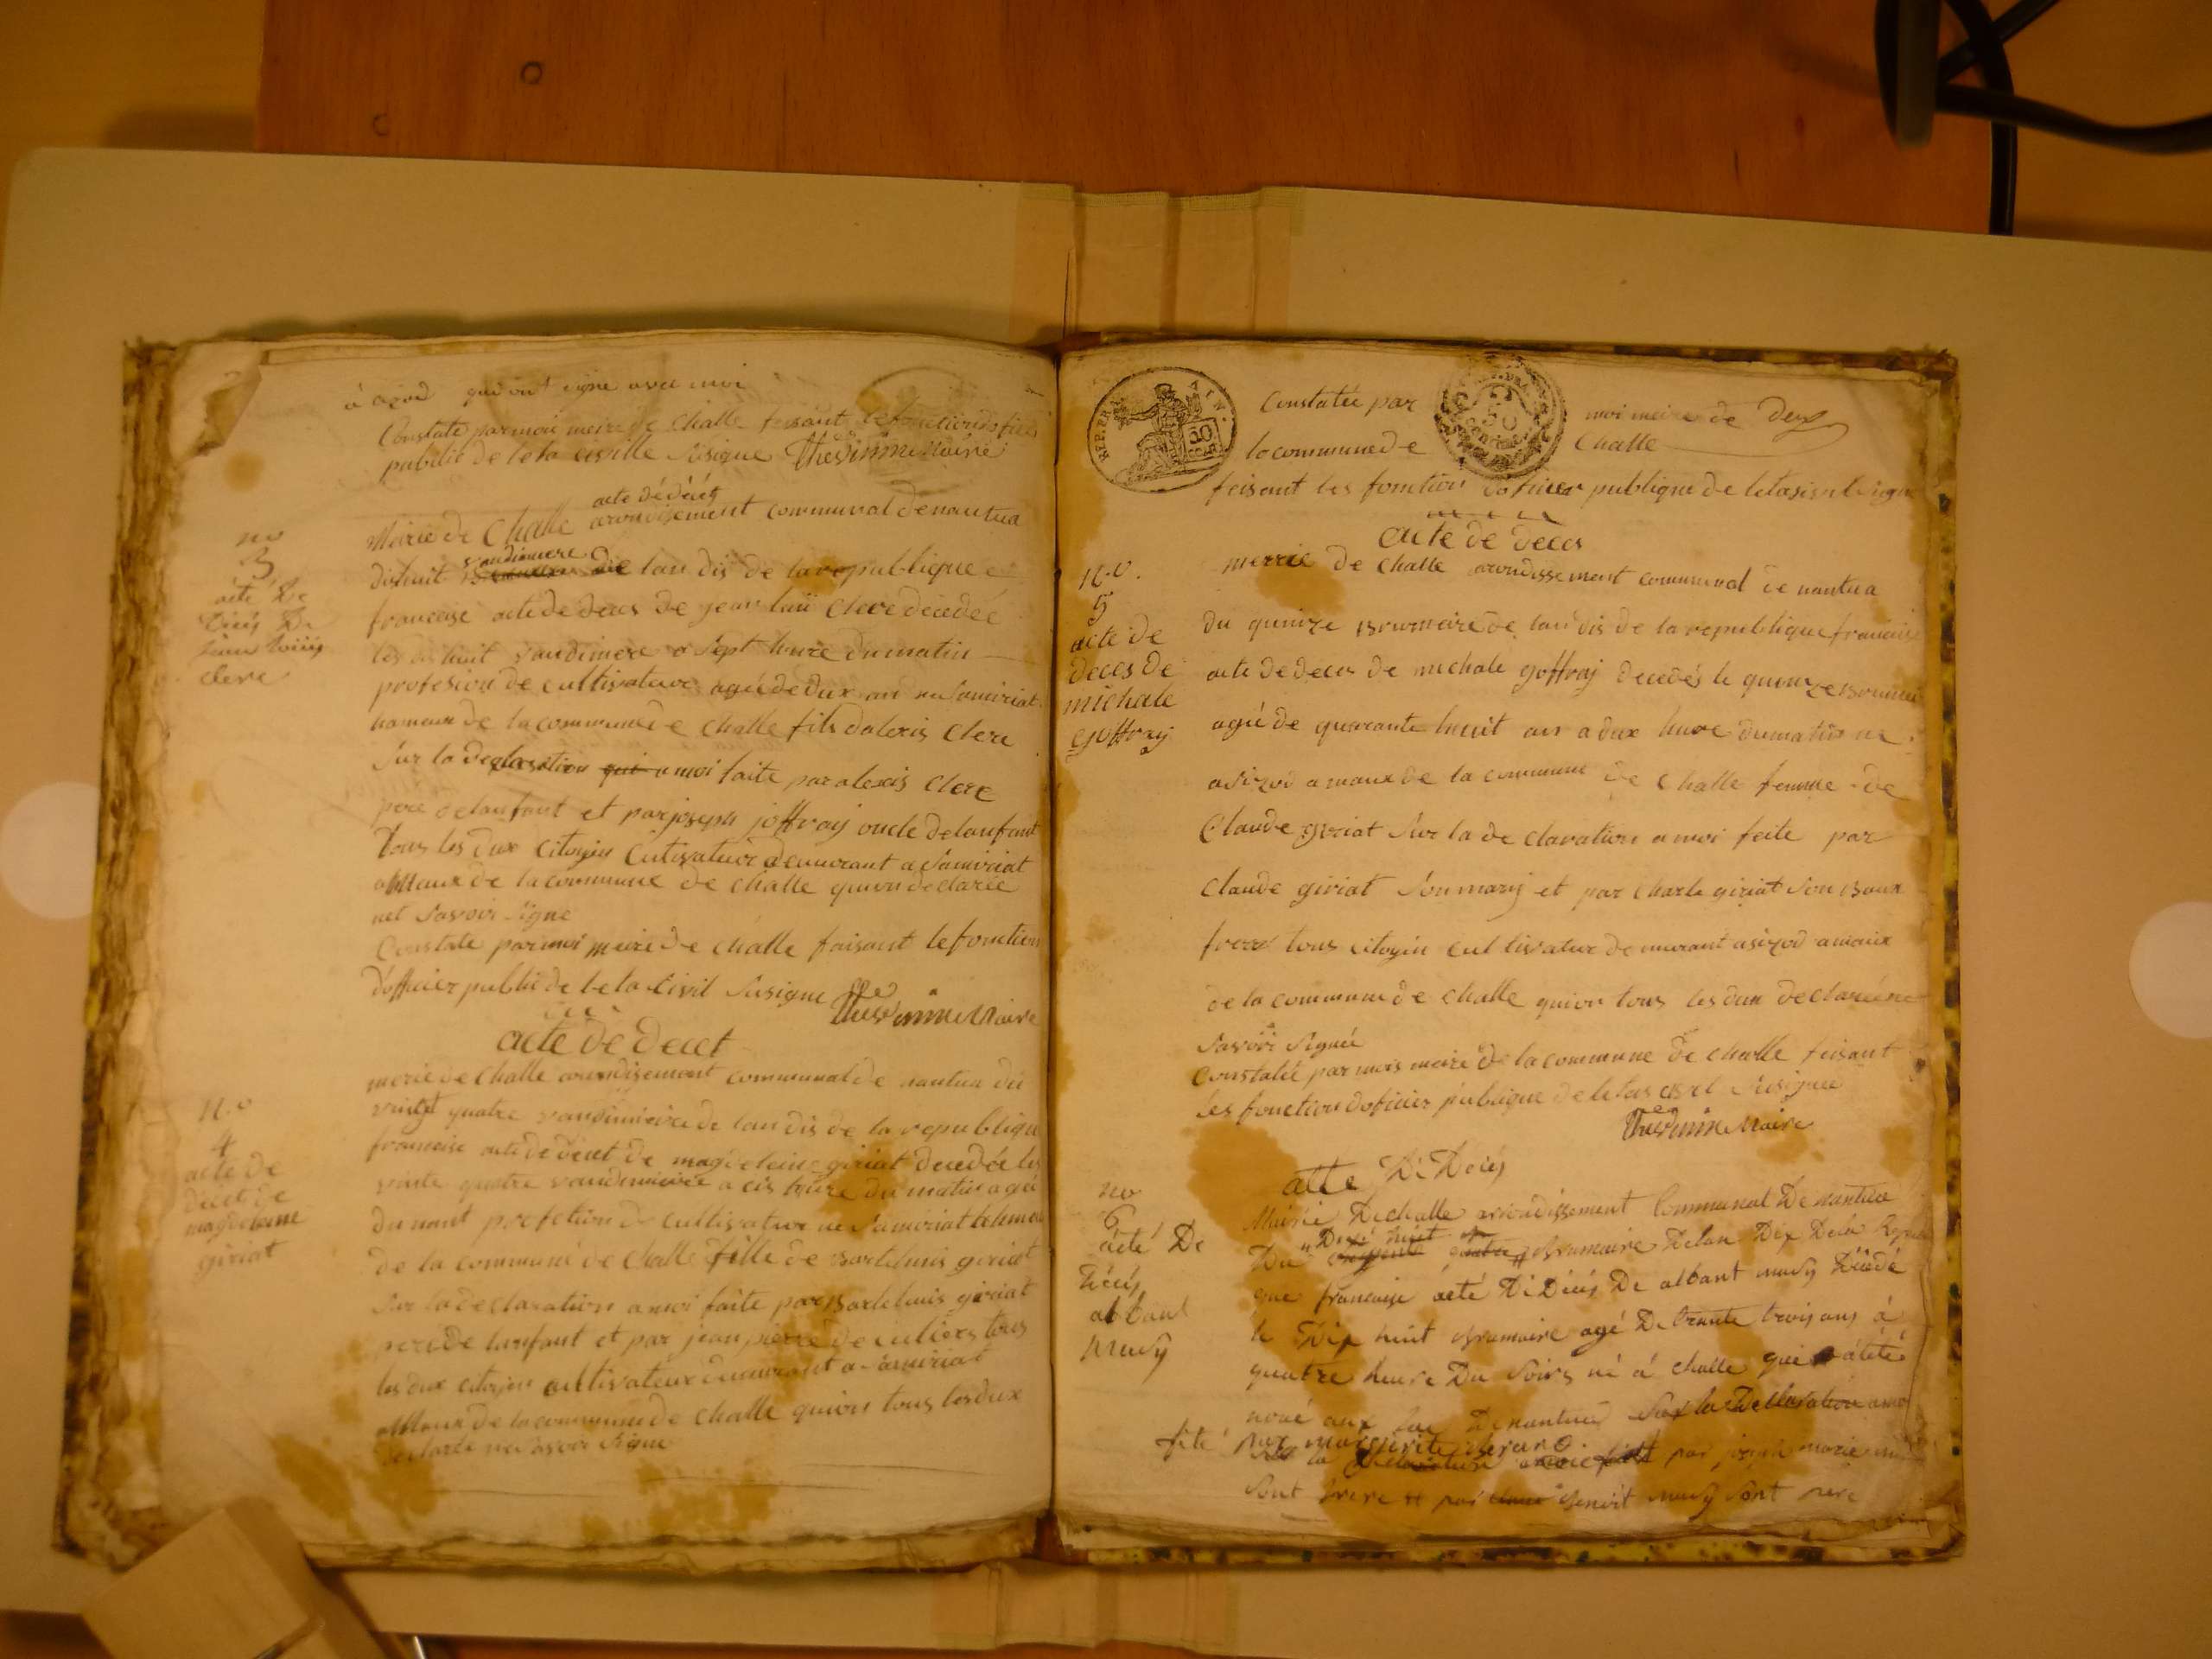 à azod qui ont signe avec moi
Constate par moi meire de Challe fesant le fonction dofficie
public de leta civille Susigne Thevenin Maire
acte décéds
Mairie de Challe arondisement communal de nantua
dishuit vandimiere lan dis de la republique
francaise acte de deces de jean loui Clerc décedée
les dishuit vandimiere a sept heure du matin
profesion de cultivateur agée de dux an né Samiriat
hameux de la commune de Challe fils dalexis Clerc
Sur la declaration qui a moi faite par alexis Clerc
pere de lanfant et par joseph joffray oncle de lanfant
tous les dux citoyin cultivateur demeurant a Samiriat
ameaux de la commune de Challe quion declarée
net Savoir Signe
Constate par moi meire de Challe faisant le fonction
dofficier public de leta Civil Susigne
Thevenin Maire
no
3
acte De
Décés De
jean louis
clerc
acte de decet
merie de Challe arondisement communal de nantua du
vintgt quatre vandimiere de lan dis de la republique
francaise acte de décet de magdeleine giriat decedée les
vinte quatre vandimiere a cis heure du matin agée
du nant profetion de cultivateur né Samiriat
de la commune de Challe fille de bartelmis giriat
Sur la declaration a moi faite par bartelmis giriat
pere de lanfant et par jean pierre de cutiers tous
les dux citoyin cultivateur demeurant a Samiriat
ameaux de la commune de Challe quion tous les dux
declaré ne Savoir Signe
n.o
4
acte de
decet de
magdeleine
giriat
REP. FRA. AIN.
50
CENT.
Constatée par moi meire de
la commune de Challe
feisant les fonction doficier publique de leta sivil Susigne
acte de deces
merrie de Challe arondissement communal de nantua
du quinze brumaire de lan dis de la republique francaise
acte de deces de michale goffray decedés le quinze brumaire
agée de quarante huit an a dux hure du matin né
a Sizod amaux de la commune de Challe femme de
Claude giriat Sur la declaration a moi feite par
Claude giriat Son marij et par Charle giriat Son baux
frere tous citoyin cultivateur demurant a sizod amaux
de la commune de Challe quion tous les dux declarée ne
Savoir Signée
Constatée par mois meire de la commune de Challe feisant
les fonction doficier publique de leta sivil Susignée
Thevenin Maire
n.o.
5
acte de
deces de
michale
goffray
atte De Décés
Mairie De challe arrondissement Communal De nantua
Du Dixe huit brumaire De lan Dix De la Republi
que francaise acté De Décés De albant mury Décédé
le Dix huit brumaire agé De trante trois ans à
quatre heure Du Soirs né à challe qui a étté
noyé aux lac De nantua Sur la Declaration a moi
féte par margueritte
la par joseph marie
Sont frere et par benoit mury Sont pere
no
6
acté De
Décés
albant
mury